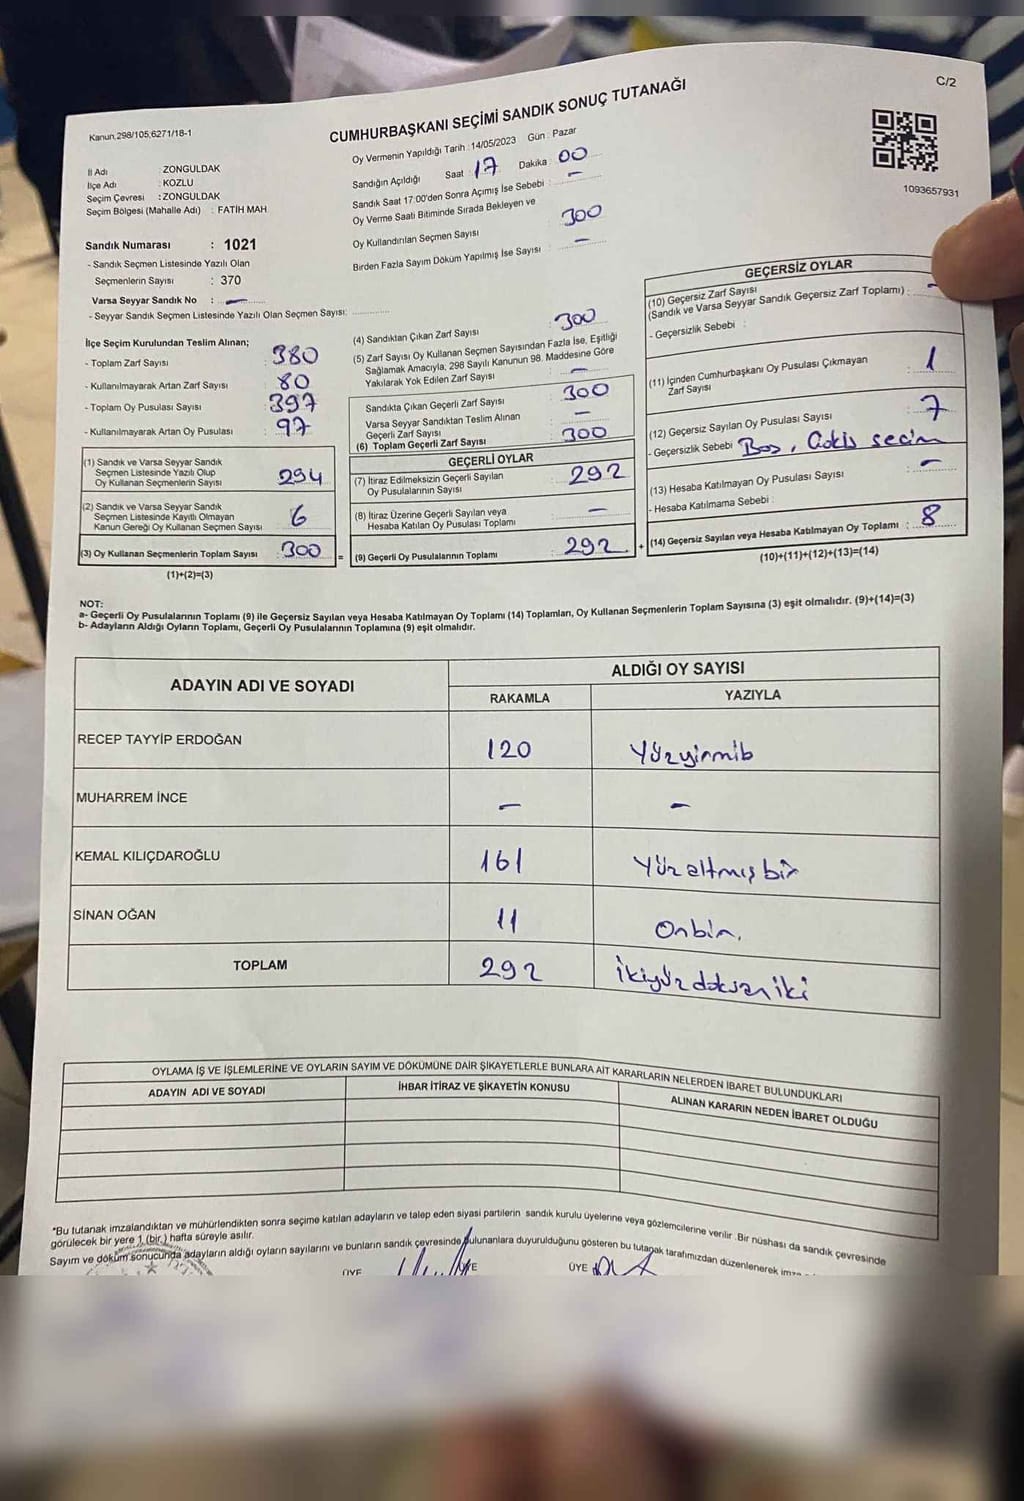 C/2
Kanun,298/105,6271/18-1
CUMHURBAŞKANI SEÇİMİ SANDIK SONUÇ TUTANAĞI
Oy Vermenin Yapıldığı Tarih :14/05/2023 Gün : Pazar
Sandığın Açıldığı Saat : 17 Dakika : 00
Sandık Saat 17:00'den Sonra Açımış İse Sebebi : –
Oy Verme Saati Bitiminde Sırada Bekleyen ve
Oy Kullandırılan Seçmen Sayısı 300
Birden Fazla Sayım Döküm Yapılmış İse Sayısı : –
1093657931
İl Adı : ZONGULDAK
İlçe Adı : KOZLU
Seçim Çevresi : ZONGULDAK
Seçim Bölgesi (Mahalle Adı) : FATİH MAH.
Sandık Numarası : 1021
- Sandık Seçmen Listesinde Yazılı Olan
Seçmenlerin Sayısı : 370
Varsa Seyyar Sandık No : –
- Seyyar Sandık Seçmen Listesinde Yazılı Olan Seçmen Sayısı:
İlçe Seçim Kurulundan Teslim Alınan;
- Toplam Zarf Sayısı : 380
- Kullanılmayarak Artan Zarf Sayısı : 80
- Toplam Oy Pusulası Sayısı : 397
- Kullanılmayarak Artan Oy Pusulası : 97
(1) Sandık ve Varsa Seyyar Sandık
Seçmen Listesinde Yazılı Olup
Oy Kullanan Seçmenlerin Sayısı 294
(2) Sandık ve Varsa Seyyar Sandık
Seçmen Listesinde Kayıtlı Olmayan
Kanun Gereği Oy Kullanan Seçmen Sayısı 6
(3) Oy Kullanan Seçmenlerin Toplam Sayısı : 300
(1)+(2)=(3)
(4) Sandıktan Çıkan Zarf Sayısı 300
(5) Zarf Sayısı Oy Kullanan Seçmen Sayısından Fazla İse, Eşitliği
Sağlamak Amacıyla, 298 Sayılı Kanunun 98. Maddesine Göre
Yakılarak Yok Edilen Zarf Sayısı –
Sandıkta Çıkan Geçerli Zarf Sayısı 300
Varsa Seyyar Sandıktan Teslim Alınan
Geçerli Zarf Sayısı –
(6) Toplam Geçerli Zarf Sayısı 300
GEÇERLİ OYLAR
(7) İtiraz Edilmeksizin Geçerli Sayılan
Oy Pusulalarının Sayısı 292
(8) İtiraz Üzerine Geçerli Sayılan veya
Hesaba Katılan Oy Pusulası Toplamı –
= (9) Geçerli Oy Pusulalarının Toplamı : 292
GEÇERSİZ OYLAR
(10) Geçersiz Zarf Sayısı
(Sandık ve Varsa Seyyar Sandık Geçersiz Zarf Toplamı) : –
- Geçersizlik Sebebi :
(11) İçinden Cumhurbaşkanı Oy Pusulası Çıkmayan
Zarf Sayısı : 1
(12) Geçersiz Sayılan Oy Pusulası Sayısı : 7
- Geçersizlik Sebebi Boş, seçim
(13) Hesaba Katılmayan Oy Pusulası Sayısı : –
- Hesaba Katılmama Sebebi :
+ (14) Geçersiz Sayılan veya Hesaba Katılmayan Oy Toplamı : 8
(10)+(11)+(12)+(13)=(14)
NOT:
a- Geçerli Oy Pusulalarının Toplamı (9) ile Geçersiz Sayılan veya Hesaba Katılmayan Oy Toplamı (14) Toplamları, Oy Kullanan Seçmenlerin Toplam Sayısına (3) eşit olmalıdır. (9)+(14)=(3)
b- Adayların Aldığı Oyların Toplamı, Geçerli Oy Pusulalarının Toplamına (9) eşit olmalıdır.
ADAYIN ADI VE SOYADI ALDIĞI OY SAYISI
RAKAMLA YAZIYLA
RECEP TAYYİP ERDOĞAN 120 Yüzyirmib
MUHARREM İNCE – –
KEMAL KILIÇDAROĞLU 161 Yüzaltmışbir
SİNAN OĞAN 11 Onbir.
TOPLAM 292 İkiyüzdoksaniki
OYLAMA İŞ VE İŞLEMLERİNE VE OYLARIN SAYIM VE DÖKÜMÜNE DAİR ŞİKAYETLERLE BUNLARA AİT KARARLARIN NELERDEN İBARET BULUNDUKLARI
ADAYIN ADI VE SOYADI İHBAR İTİRAZ VE ŞİKAYETİN KONUSU ALINAN KARARIN NEDEN İBARET OLDUĞU
*Bu tutanak imzalandıktan ve mühürlendikten sonra seçime katılan adayların ve talep eden siyasi partilerin sandık kurulu üyelerine veya gözlemcilerine verilir. Bir nüshası da sandık çevresinde
görülecek bir yere 1 (bir) hafta süreyle asılır.
Sayım ve döküm sonucunda adayların aldığı oyların sayılarını ve bunların sandık çevresinde bulunanlara duyurulduğunu gösteren bu tutanak tarafımızdan düzenlenerek
ÜYE ÜYE ÜYE